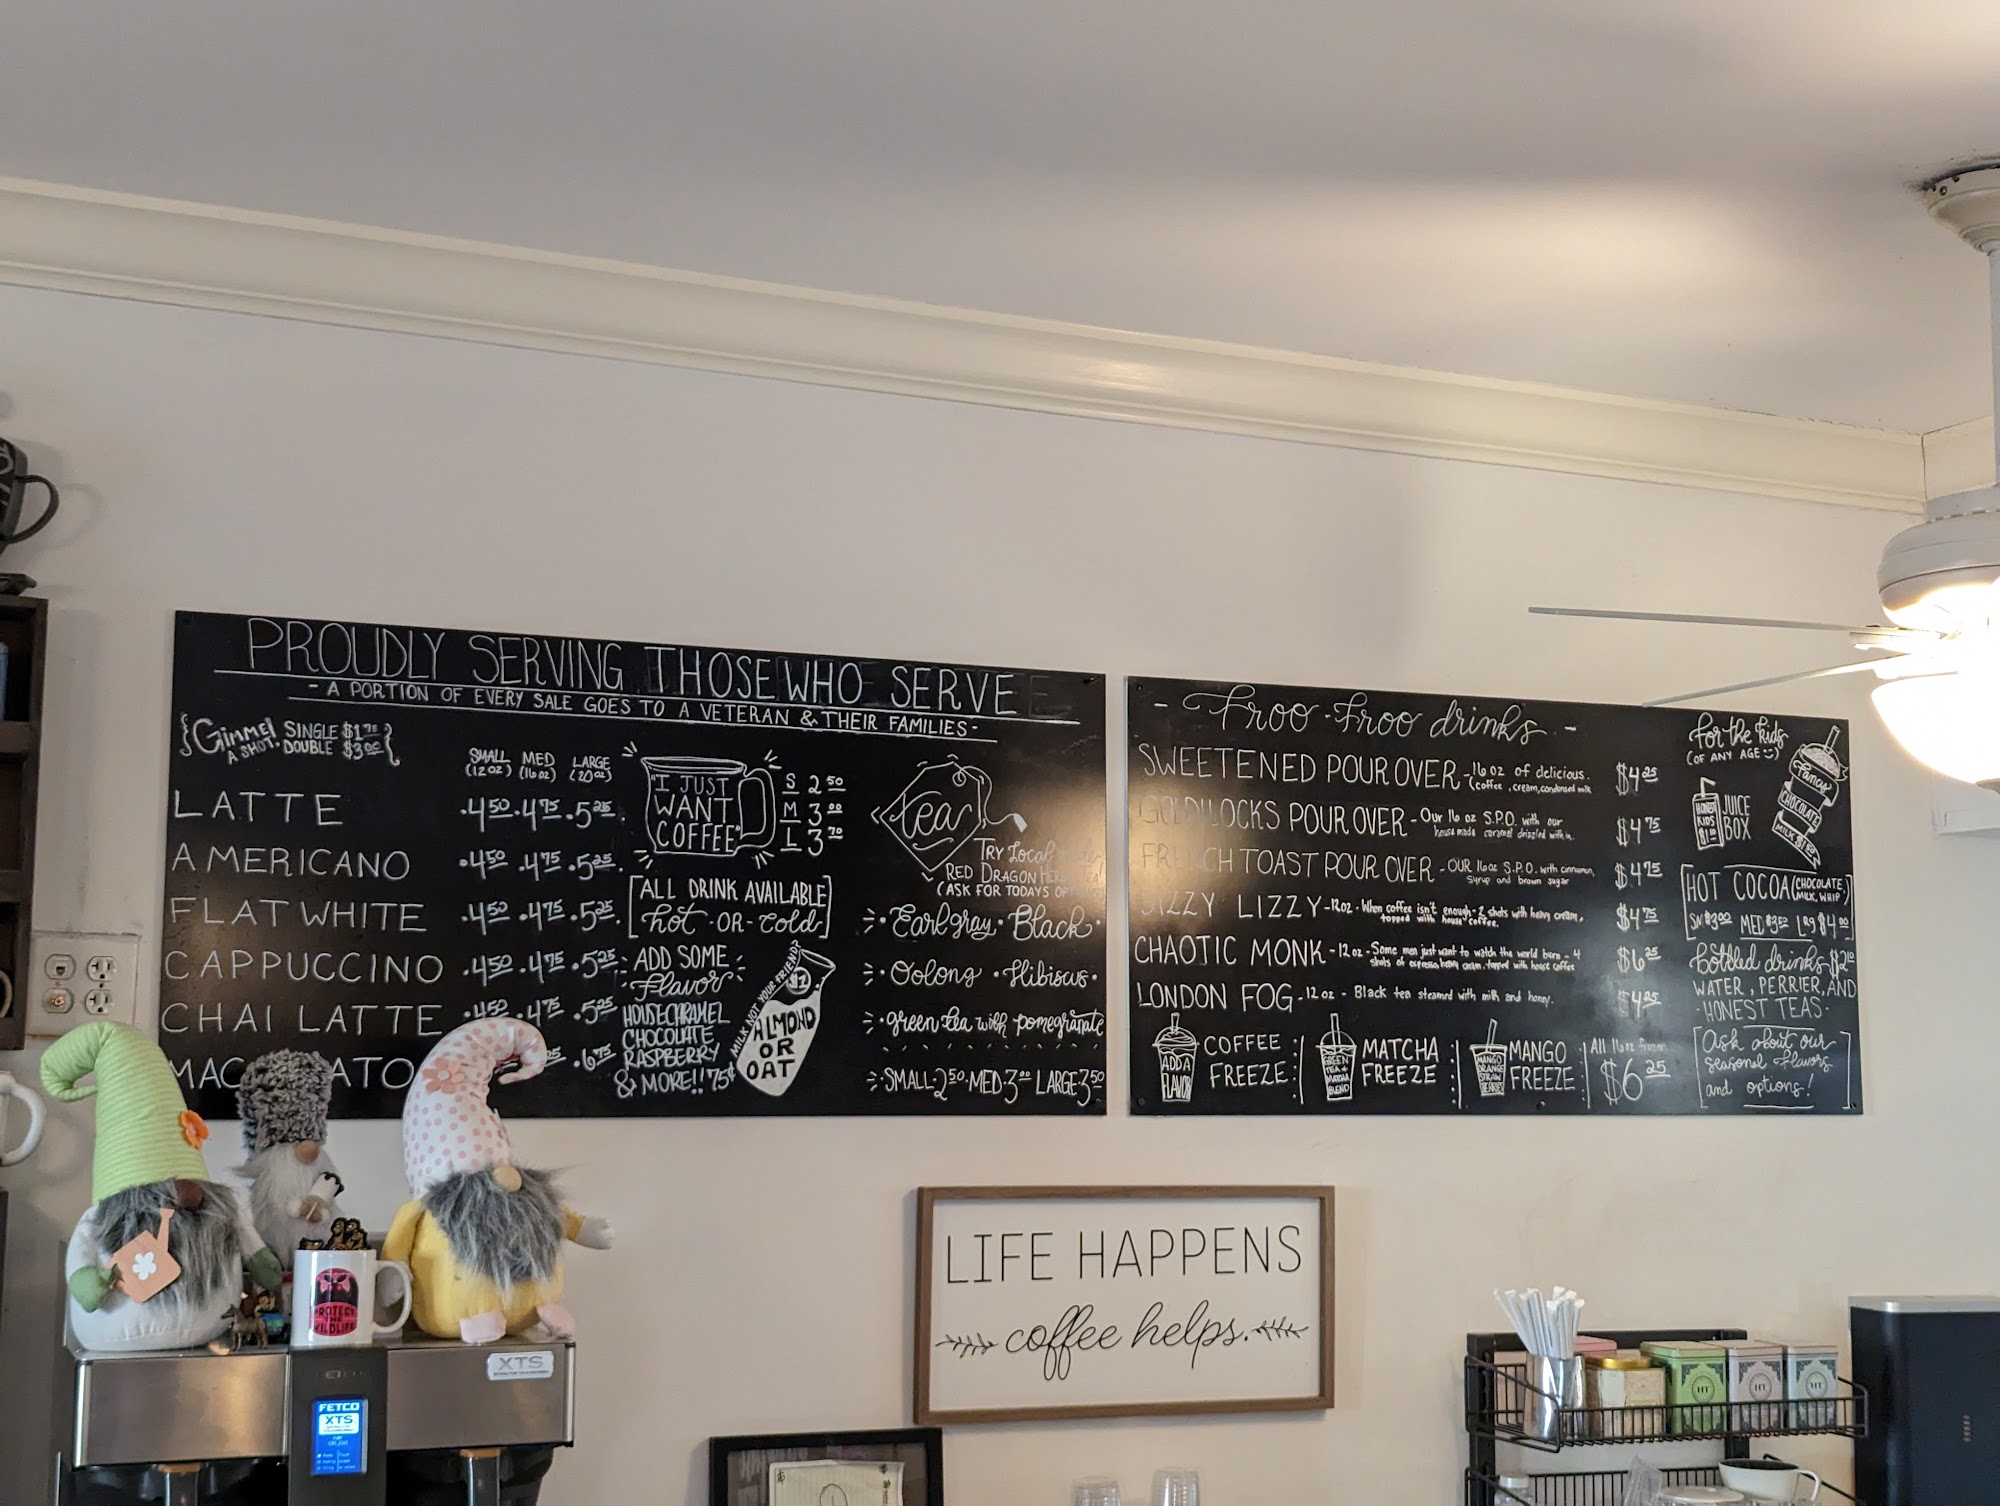 PROUDLY SERVING THOSE WHO SERVE
- A PORTION OF EVERY SALE GOES TO A VETERAN & THEIR FAMILIES -
Gimmel A SHOT.
SINGLE $1.75
DOUBLE $3.00
SMALL (12 oz) MED (16 oz) LARGE (20 oz)
LATTE .4.50 .4.75 .5.25
AMERICANO .4.50 .4.75 .5.25
FLAT WHITE .4.50 .4.75 .5.25
CAPPUCCINO .4.50 .4.75 .5.25
CHAI LATTE .4.50 .4.75 .5.25
.6.75
"I JUST
WANT
COFFEE"
S 2.50
M 3.00
L 3.70
[ALL DRINK AVAILABLE
hot -OR- cold]
ADD SOME
Flavor
HOUSE CARAMEL
CHOCOLATE
RASPBERRY
& MORE!! 75¢
MILK NOT YOUR FRIEND?
$1.2
ALMOND
OR
OAT
tea
TRY Local
RED DRAGON
(ASK FOR TODAYS
Earl gray · Black ·
Oolong · Hibiscus ·
green tea with pomegranate
SMALL · 2.50 · MED · 3.00 LARGE 3.50
- Froo-Froo drinks -
SWEETENED POUR OVER - 16 oz of delicious
(coffee, cream, condensed milk $4.25
GOLDILOCKS POUR OVER - Our 16 oz S.P.O. with our
house made caramel drizzled within. $4.75
FRENCH TOAST POUR OVER - OUR 16 oz S.P.O. with cinnamon,
syrup and brown sugar $4.75
DIZZY LIZZY - 12 oz - When coffee isn't enough - 2 shots with heavy cream,
topped with house coffee. $4.75
CHAOTIC MONK - 12 oz - Some men just want to watch the world burn - 4
shots of espresso, heavy cream, topped with house coffee $6.25
LONDON FOG - 12 oz - Black tea steamed with milk and honey. $4.25
ADD A
FLAVOR
COFFEE
FREEZE
GREEN
TEA +
MATCHA
BLEND
MATCHA
FREEZE
MANGO
ORANGE
STRAW
BERRIES
MANGO
FREEZE
All 16 oz frozen
$6.25
for the kids
(OF ANY AGE :))
HONEST
KIDS
$1.10
JUICE
BOX
Fancy
CHOCOLATE
MILK
[HOT COCOA (CHOCOLATE, MILK, WHIP)
SM $3.00 MED $3.50 LRG $4.00]
bottled drinks $2.10
WATER, PERRIER, AND
· HONEST TEAS ·
[Ask about our
seasonal flavors
and options!]
LIFE HAPPENS
coffee helps.
PROTECT
THE
WILDLIFE
XTS
FETCO
XTS
HT
HT
HT